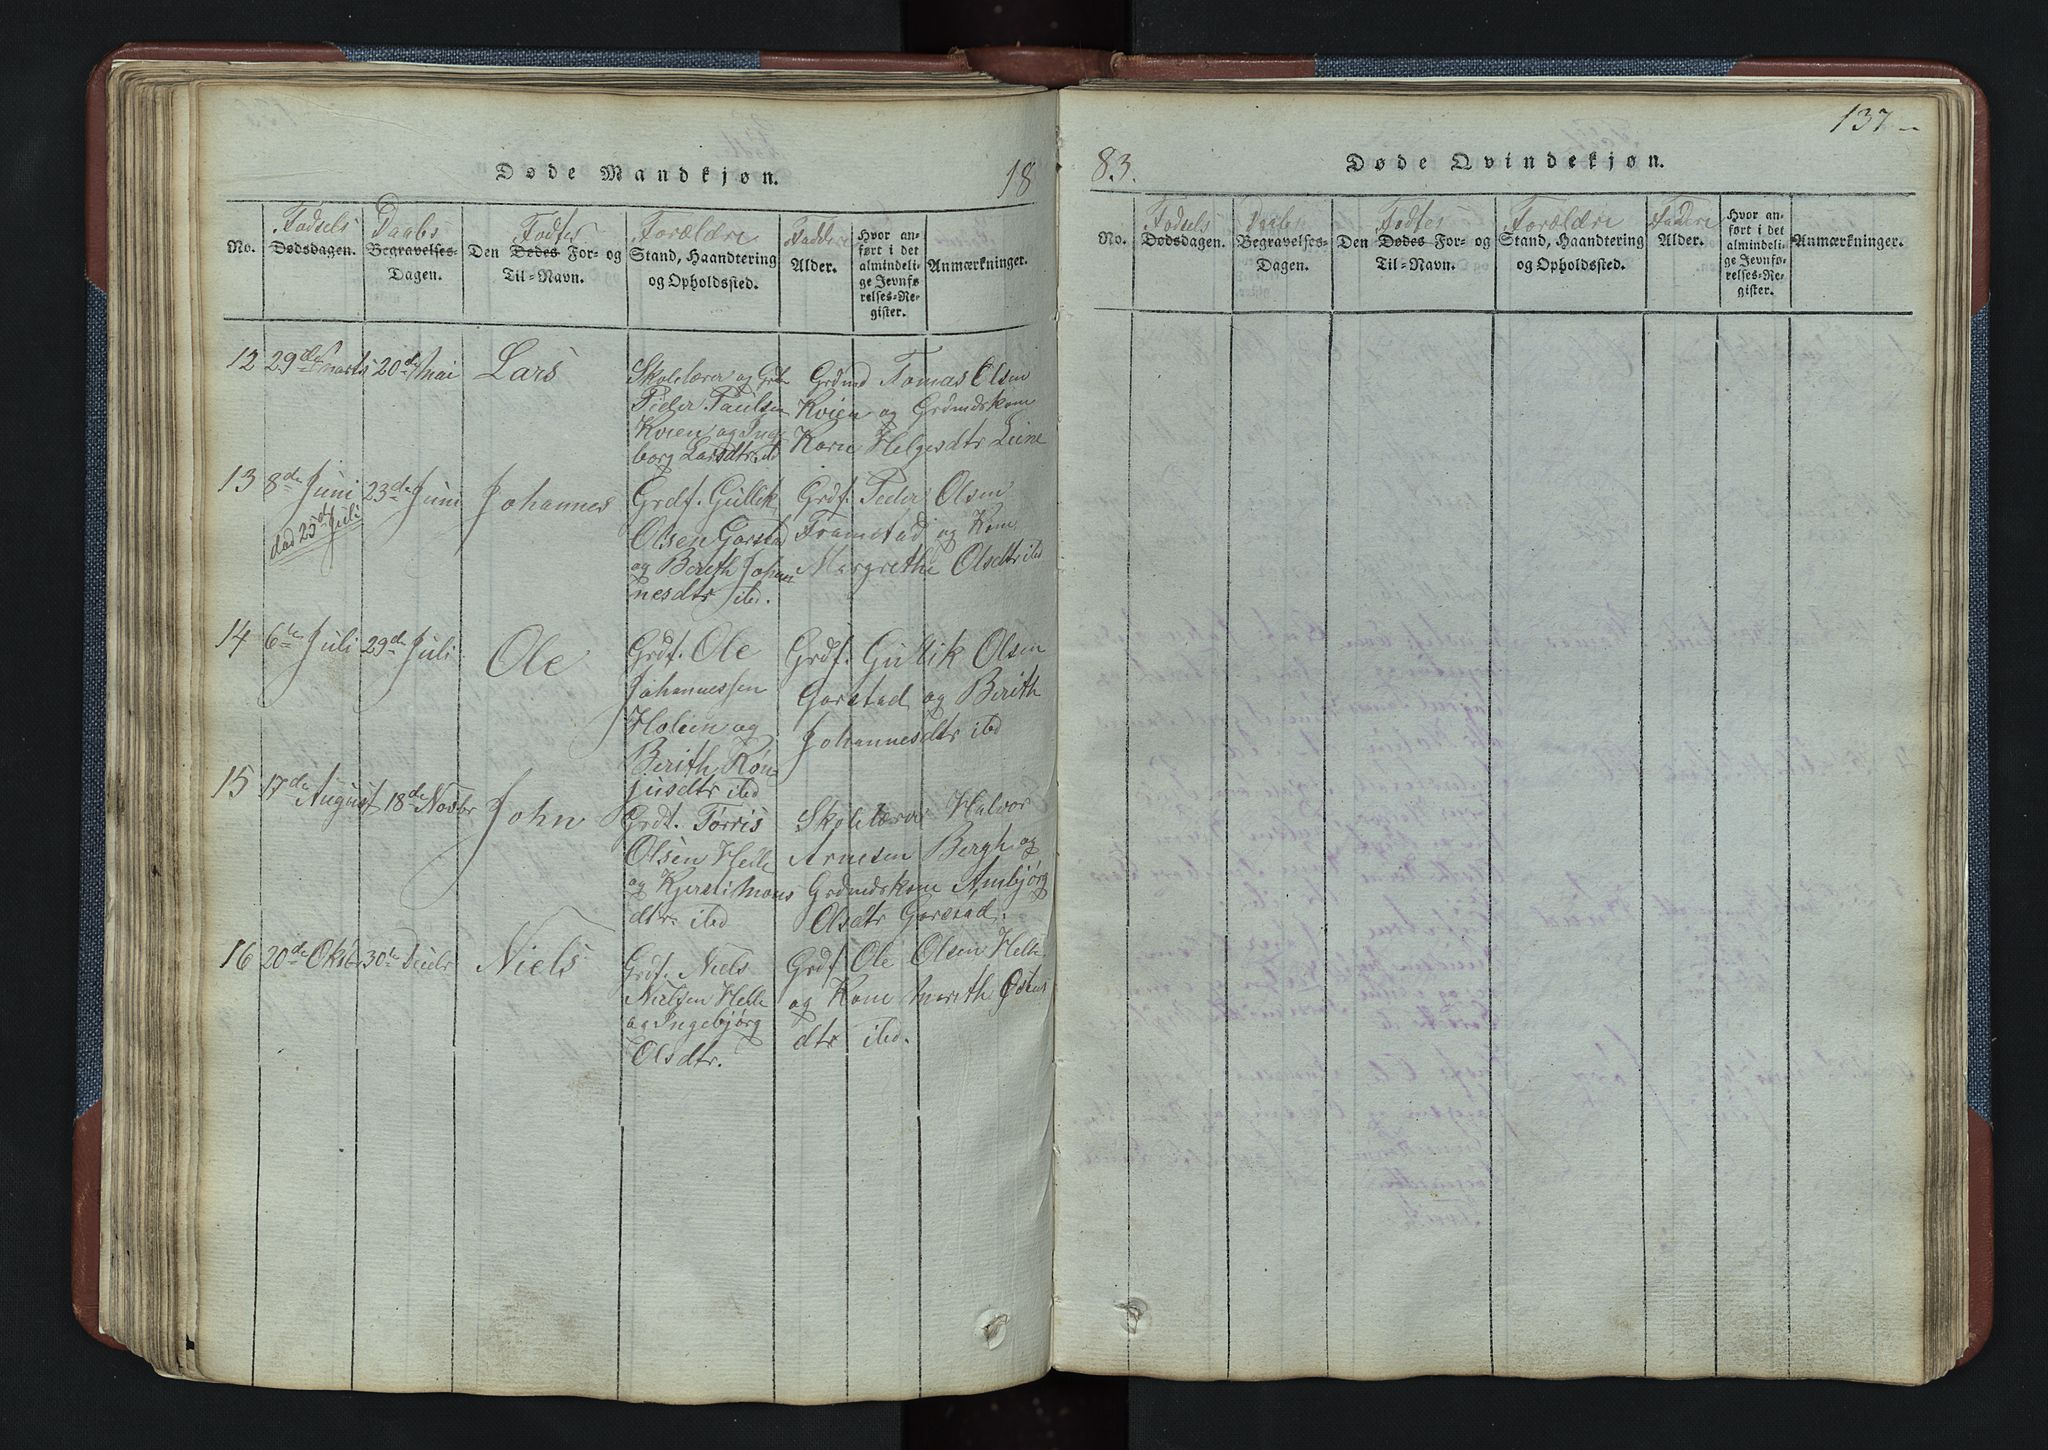 Døde Mandkjøn.
18
No.
Fødsels
Dødsdagen.
Daabs
Begravelses-
Dagen.
Fødtes
Den Dødes For- og
Til-Navn.
Forældre
Stand, Haandtering
og Opholdssted.
Faddere
Alder.
Hvor an-
ført i det
almindeli-
ge Jevnfø-
relses-Re-
gister.
Anmærkninger.
12 29de Marts 20de Mai Lars
Skolelærer og
Peder Paulsen
Kvien og Inge
borg Larsdtr ibd
Grdmd Tomas Olsen
Kvien og Grdmdskone
Kari Helgesdtr Leine
13 8de Juni 23de Juni Johannes
død 25de Juli
Grdf. Gullik
Olsen Garstad
og Berith Johan
nesdtr ibd.
Grdf. Peder Olsen
Framstad og Kone
Margrethe Olsdtr ibd
14 6te Juli 29de Juli Ole
Grdf. Ole
Johannessen
Holien og
Berith
ibd
Grdf. Gullik Olsen
Garstad og Berith
Johannesdtr ibd
15 17de August 18de Novbr John
Grdf. Torris
Olsen Helle
og Kjersti Mons
dtr. ibd
Skolelærer Halvor
Arnesen Bergh og
Grdmdskone Anbjørg
Olsdtr Garstad.
16 20de Oktbr 30te Decbr Niels
Grdf. Niels
Nielsen Helle
og Ingebjørg
Olsdtr.
Grdf Ole Olsen Helle
og Kone Marith Østens
dtr ibd.
137
83.
Døde Qvindekjøn.
No.
Fødsels
Dødsdagen.
Daabs
Begravelses-
Dagen.
Fødtes
Den Dødes For- og
Til-Navn.
Forældre
Stand, Haandtering
og Opholdssted.
Faddere
Alder.
Hvor an-
ført i det
almindeli-
ge Jevnfø-
relses-Re-
gister.
Anmærkninger.